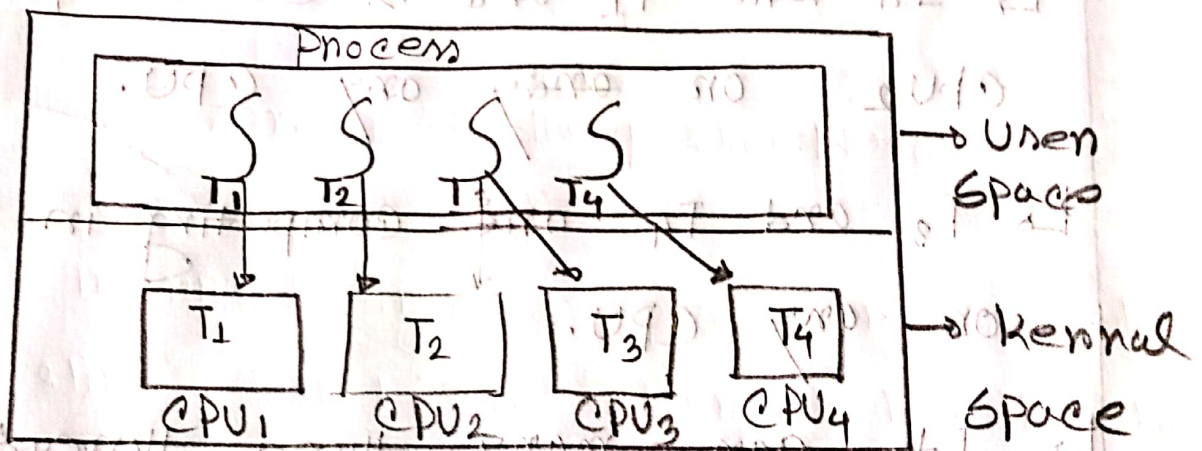 Process
T1 T2 T T4
User
Space
T1 T2 T3 T4
CPU1 CPU2 CPU3 CPU4
Kennal
Space